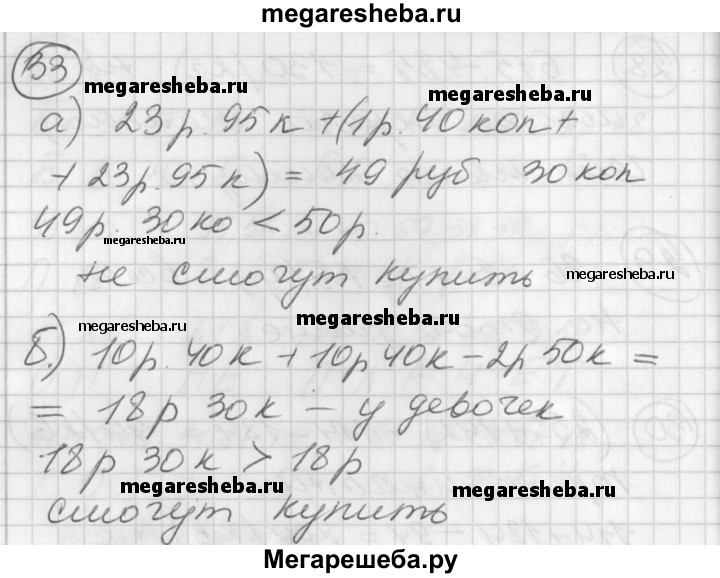 megaresheba.ru
33
megaresheba.ru megaresheba.ru
а) 23р.95к+(1р.40коп+
+23р.95к)= 49 руб 30коп
49р.30ко<50р.
megaresheba.ru
не смогут купить megaresheba.ru
megaresheba.ru megaresheba.ru
б.) 10р.40к+10р40к-2р50к=
= 18р 30к - у девочек
18р 30к > 18р
megaresheba.ru megaresheba.ru
смогут купить
Мегарешеба.ру